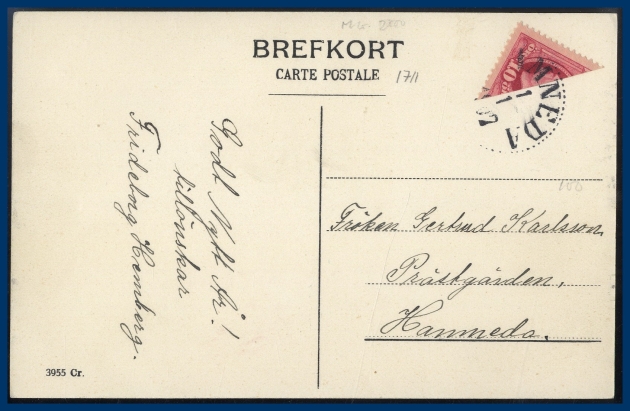 BREFKORT
CARTE POSTALE
17/1
10
MNEDA
Godt Nytt År!
tillönskar
Frideborg Hemberg.
Fröken Gertrud Karlsson,
Prästgården,
Hamneda.
100
3955 Cr.